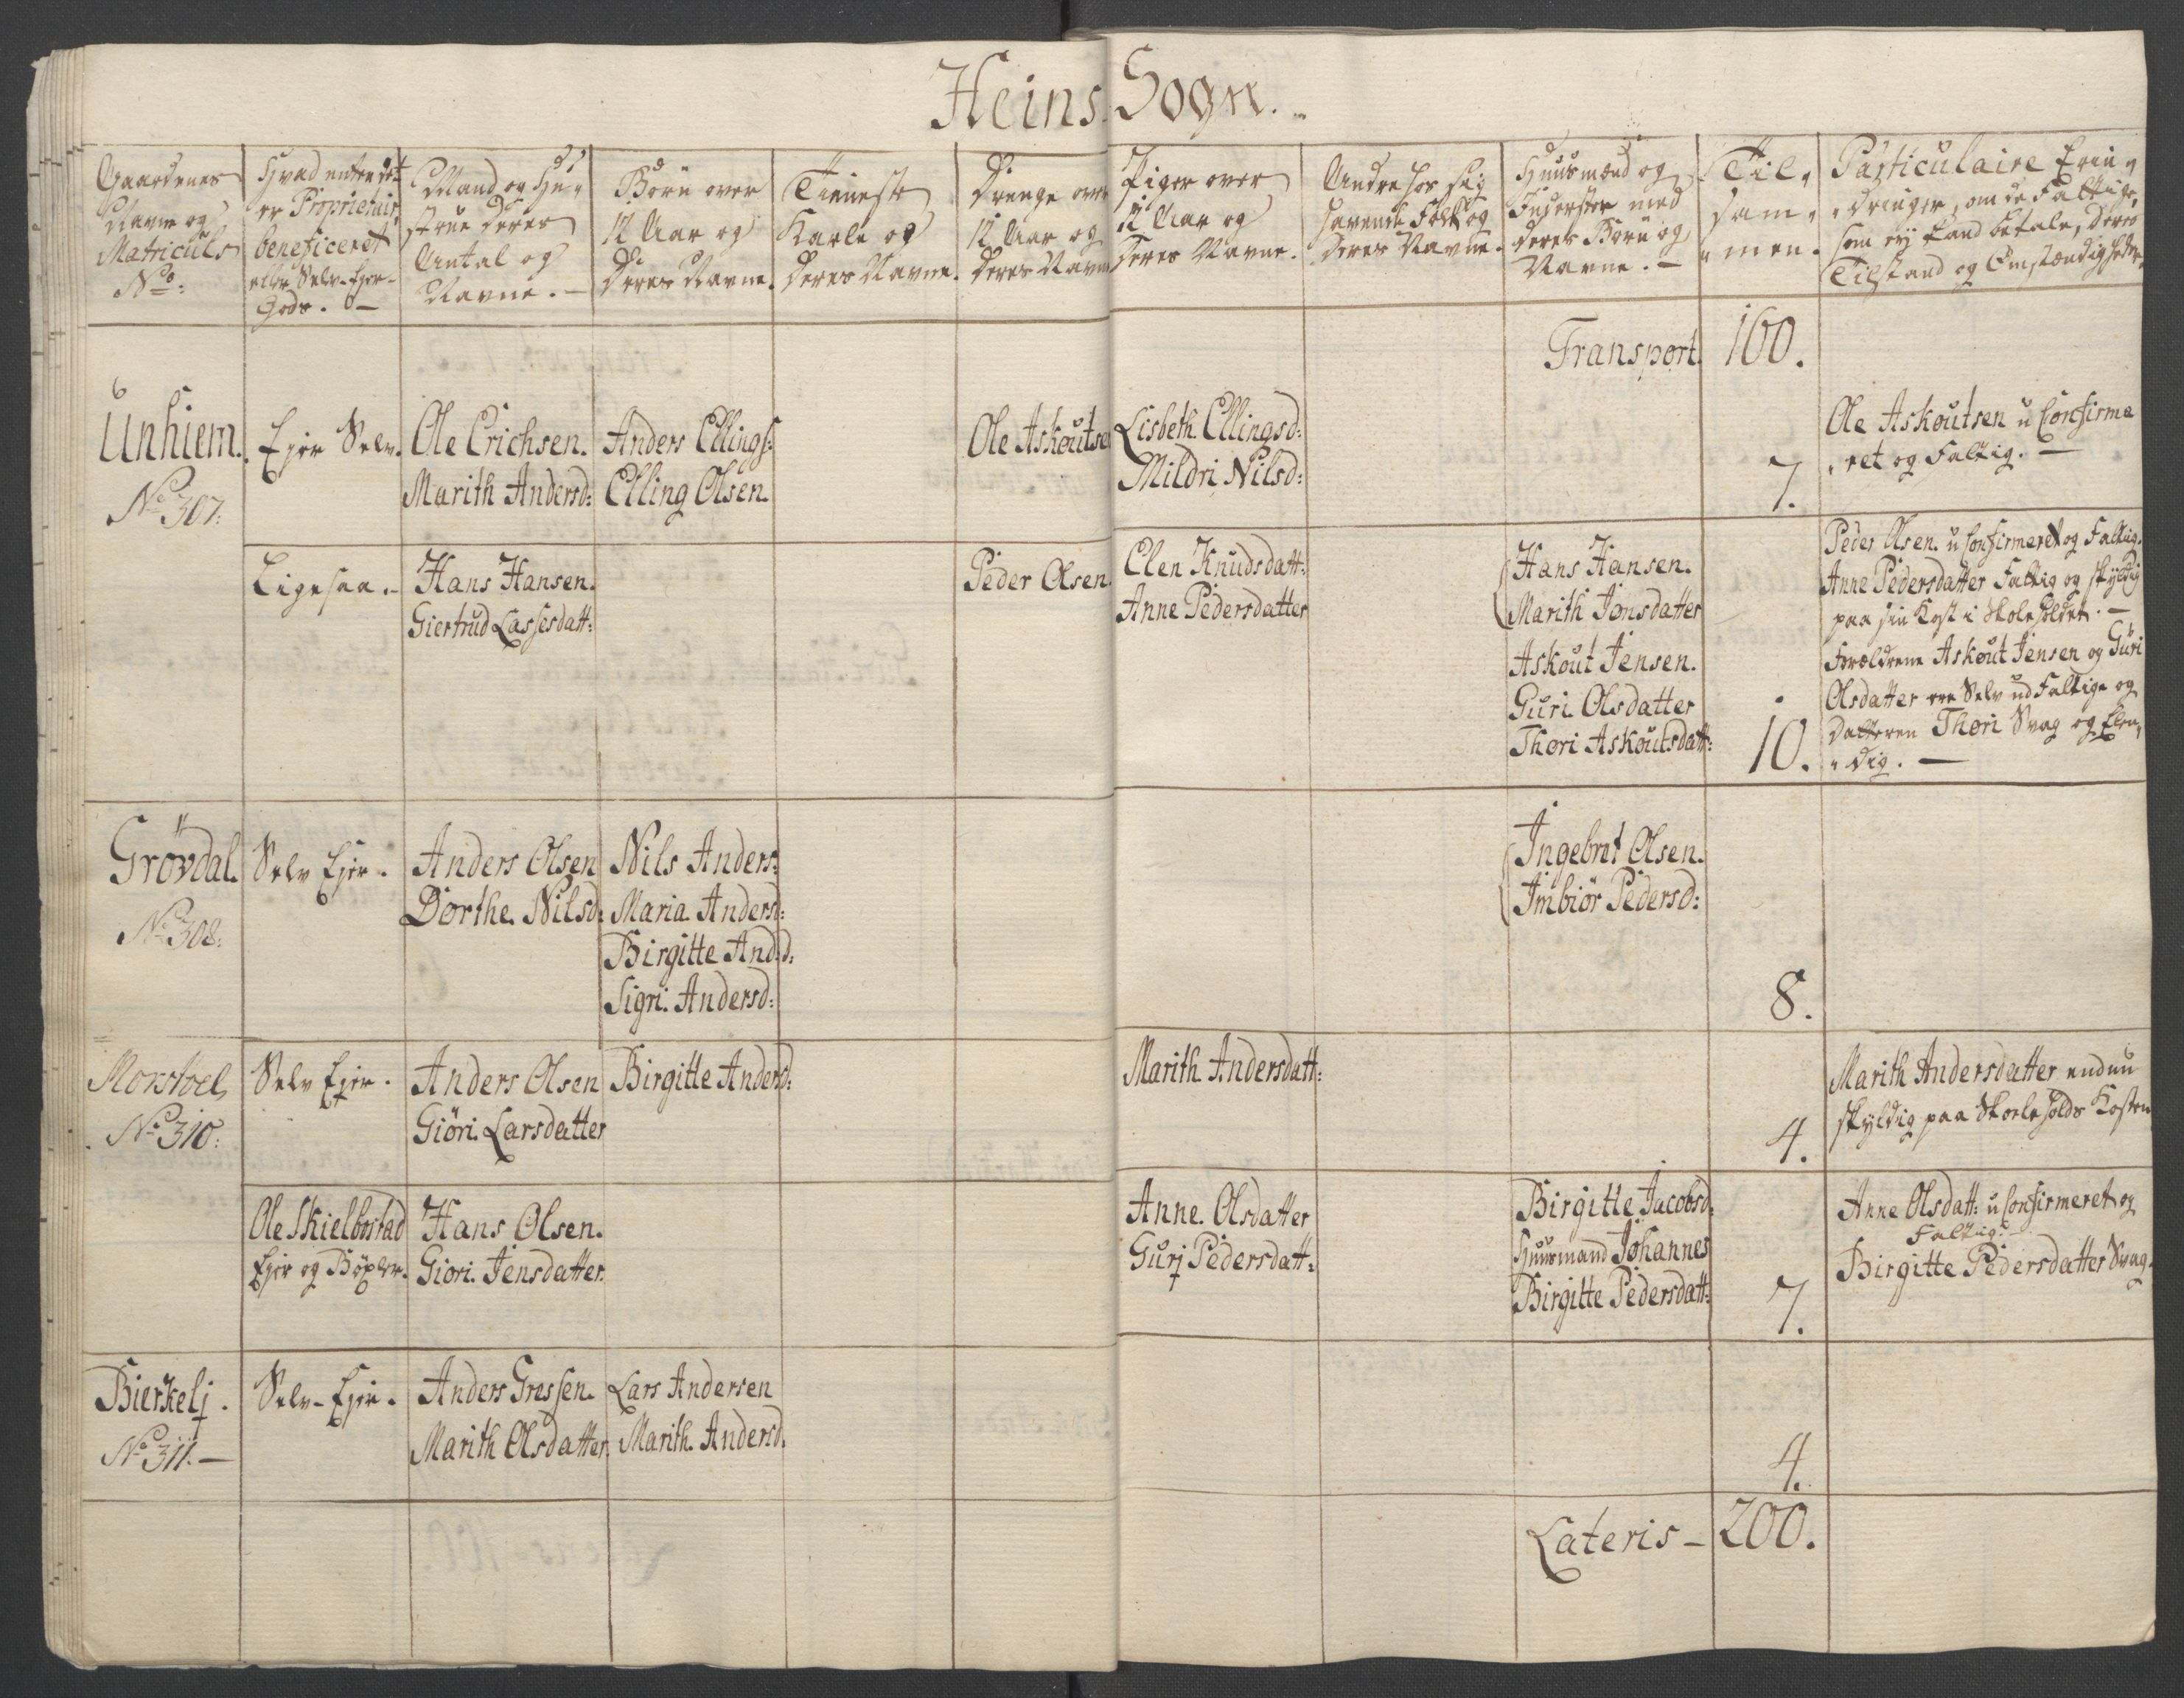 Heins Sogn.
Gaardenes
Navne og
Matriculs
No:
Hvad enten det
er Proprietair,
beneficeret
eller Selv-Ejer-
Gods. —
Mand og Hu-
strue deres
Antal og
Navne. —
Børn over
12 Aar og
Deres Navne.
Tieneste
Karle og
Deres Navne.
Drenge over
12 Aar og
Deres Navne
Piger over
12 Aar og
Deres Navne.
Andre hos sig
havende Folk og
Deres Navne.
Huusmænd og
Inderster med
deres Børn og
Navne. —
Til-
sam-
men.
Particulaire Erin-
dringer, om de Fattige,
som ey kand betale, deres
Tilstand og Omstændigheder
Transport. 160.
Unhiem.
No 307.
Ejer Selv.
Ole Erichsen.
Marith Andersd:
Anders Ellings:
Elling Olsen.
Ole Askoutsen
Lisbeth Ellingsd:
Mildri Nilsd:
7.
Ole Askoutsen u Confirme
ret og Fattig. —
Ligesaa. -
Hans Hansen.
Giertrud Lassesdatt:
Peder Olsen.
Elen Knudsdatt:
Anne Pedersdatter
Hans Hansen.
Marith Jonsdatter
Askout Jensen.
Guri Olsdatter
Thori Askoutsdatt:
10.
Peder Olsen u Confirmeret og Fattig.
Anne Pedersdatter Fattig og skyldig
paa sin Kost i Skoleholdet. —
Forældrene Askout Jensen og Guri
Olsdatter ere Selv ud Fattige og
Datteren Thori Svag og Elen-
dig. —
Grövdal.
No 308.
Selv Ejer.
Anders Olsen
Dorthe Nilsd:
Nils Anders:
Maria Andersd:
Birgitte And:d:
Sigri Andersd:
Ingebret Olsen.
Imbiör Pedersd:
8.
Morstoel
No 310:
Selv Ejer.
Anders Olsen
Giöri Larsdatter
Birgitte Andersd:
Marith Andersdatt:
4.
Marith Andersdatter endnu
skyldig paa Skoleholds Kosten
Ole Skielbostad
Ejer og Böxler.
Hans Olsen.
Giöri Jensdatter.
Anne Olsdatter
Gurj Pedersdatt:
Birgitte Jacobsd:
Huusmand Johannes
Birgitte Pedersdatt:
7.
Anne Olsdatt: u Confirmeret og
Fattig. —
Birgitte Pedersdatter Svag.
Bierkelj.
No 311. —
Selv-Ejer.
Anders Gressen.
Marith Olsdatter.
Lars Andersen
Marith Andersd.
4.
Lateris — 200.